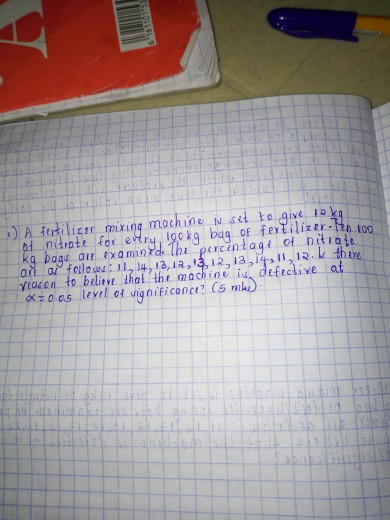 A
6 161101 53
1) A fertilizer mixing machine is set to give 12 kg
of nitrate for every 100kg bag of fertilizer. Ten 100
kg bags are examined. The percentage of nitrate
are as follows: 11, 14, 13, 12, 13, 12, 13, 14, 11, 12. Is there
reason to believe that the machine is defective at
α=0.05 level of significance? (5 mks).